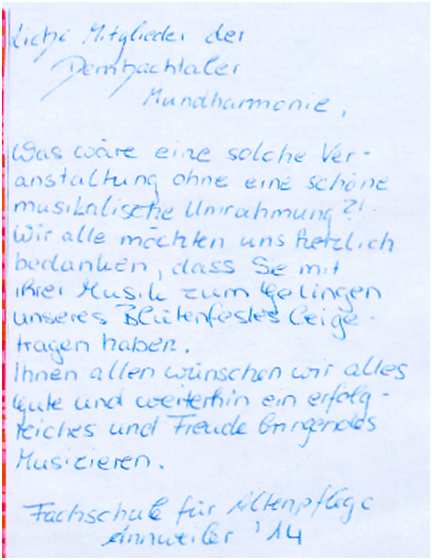 Liebe Mitglieder der
Dernbachtaler
Mundharmonie,
Was wäre eine solche Ver-
anstaltung ohne eine schöne
musikalische Umrahmung?!
Wir alle möchten uns herzlich
bedanken, dass Sie mit
ihrer Musik zum Gelingen
unseres Blütenfestes beige-
tragen haben.
Ihnen allen wünschen wir alles
Gute und weiterhin ein erfolg-
reiches und Freude bringendes
Musizieren.
Fachschule für Altenpflege
Annweiler '14